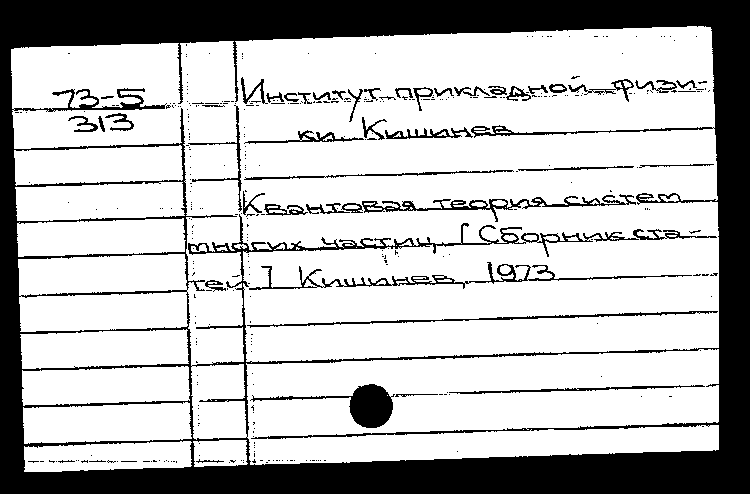 73-5
313
Институт прикладной физи-
ки. Кишинев
Квантовая теория систем
многих частиц. [Сборник ста-
тей] Кишинев, 1973